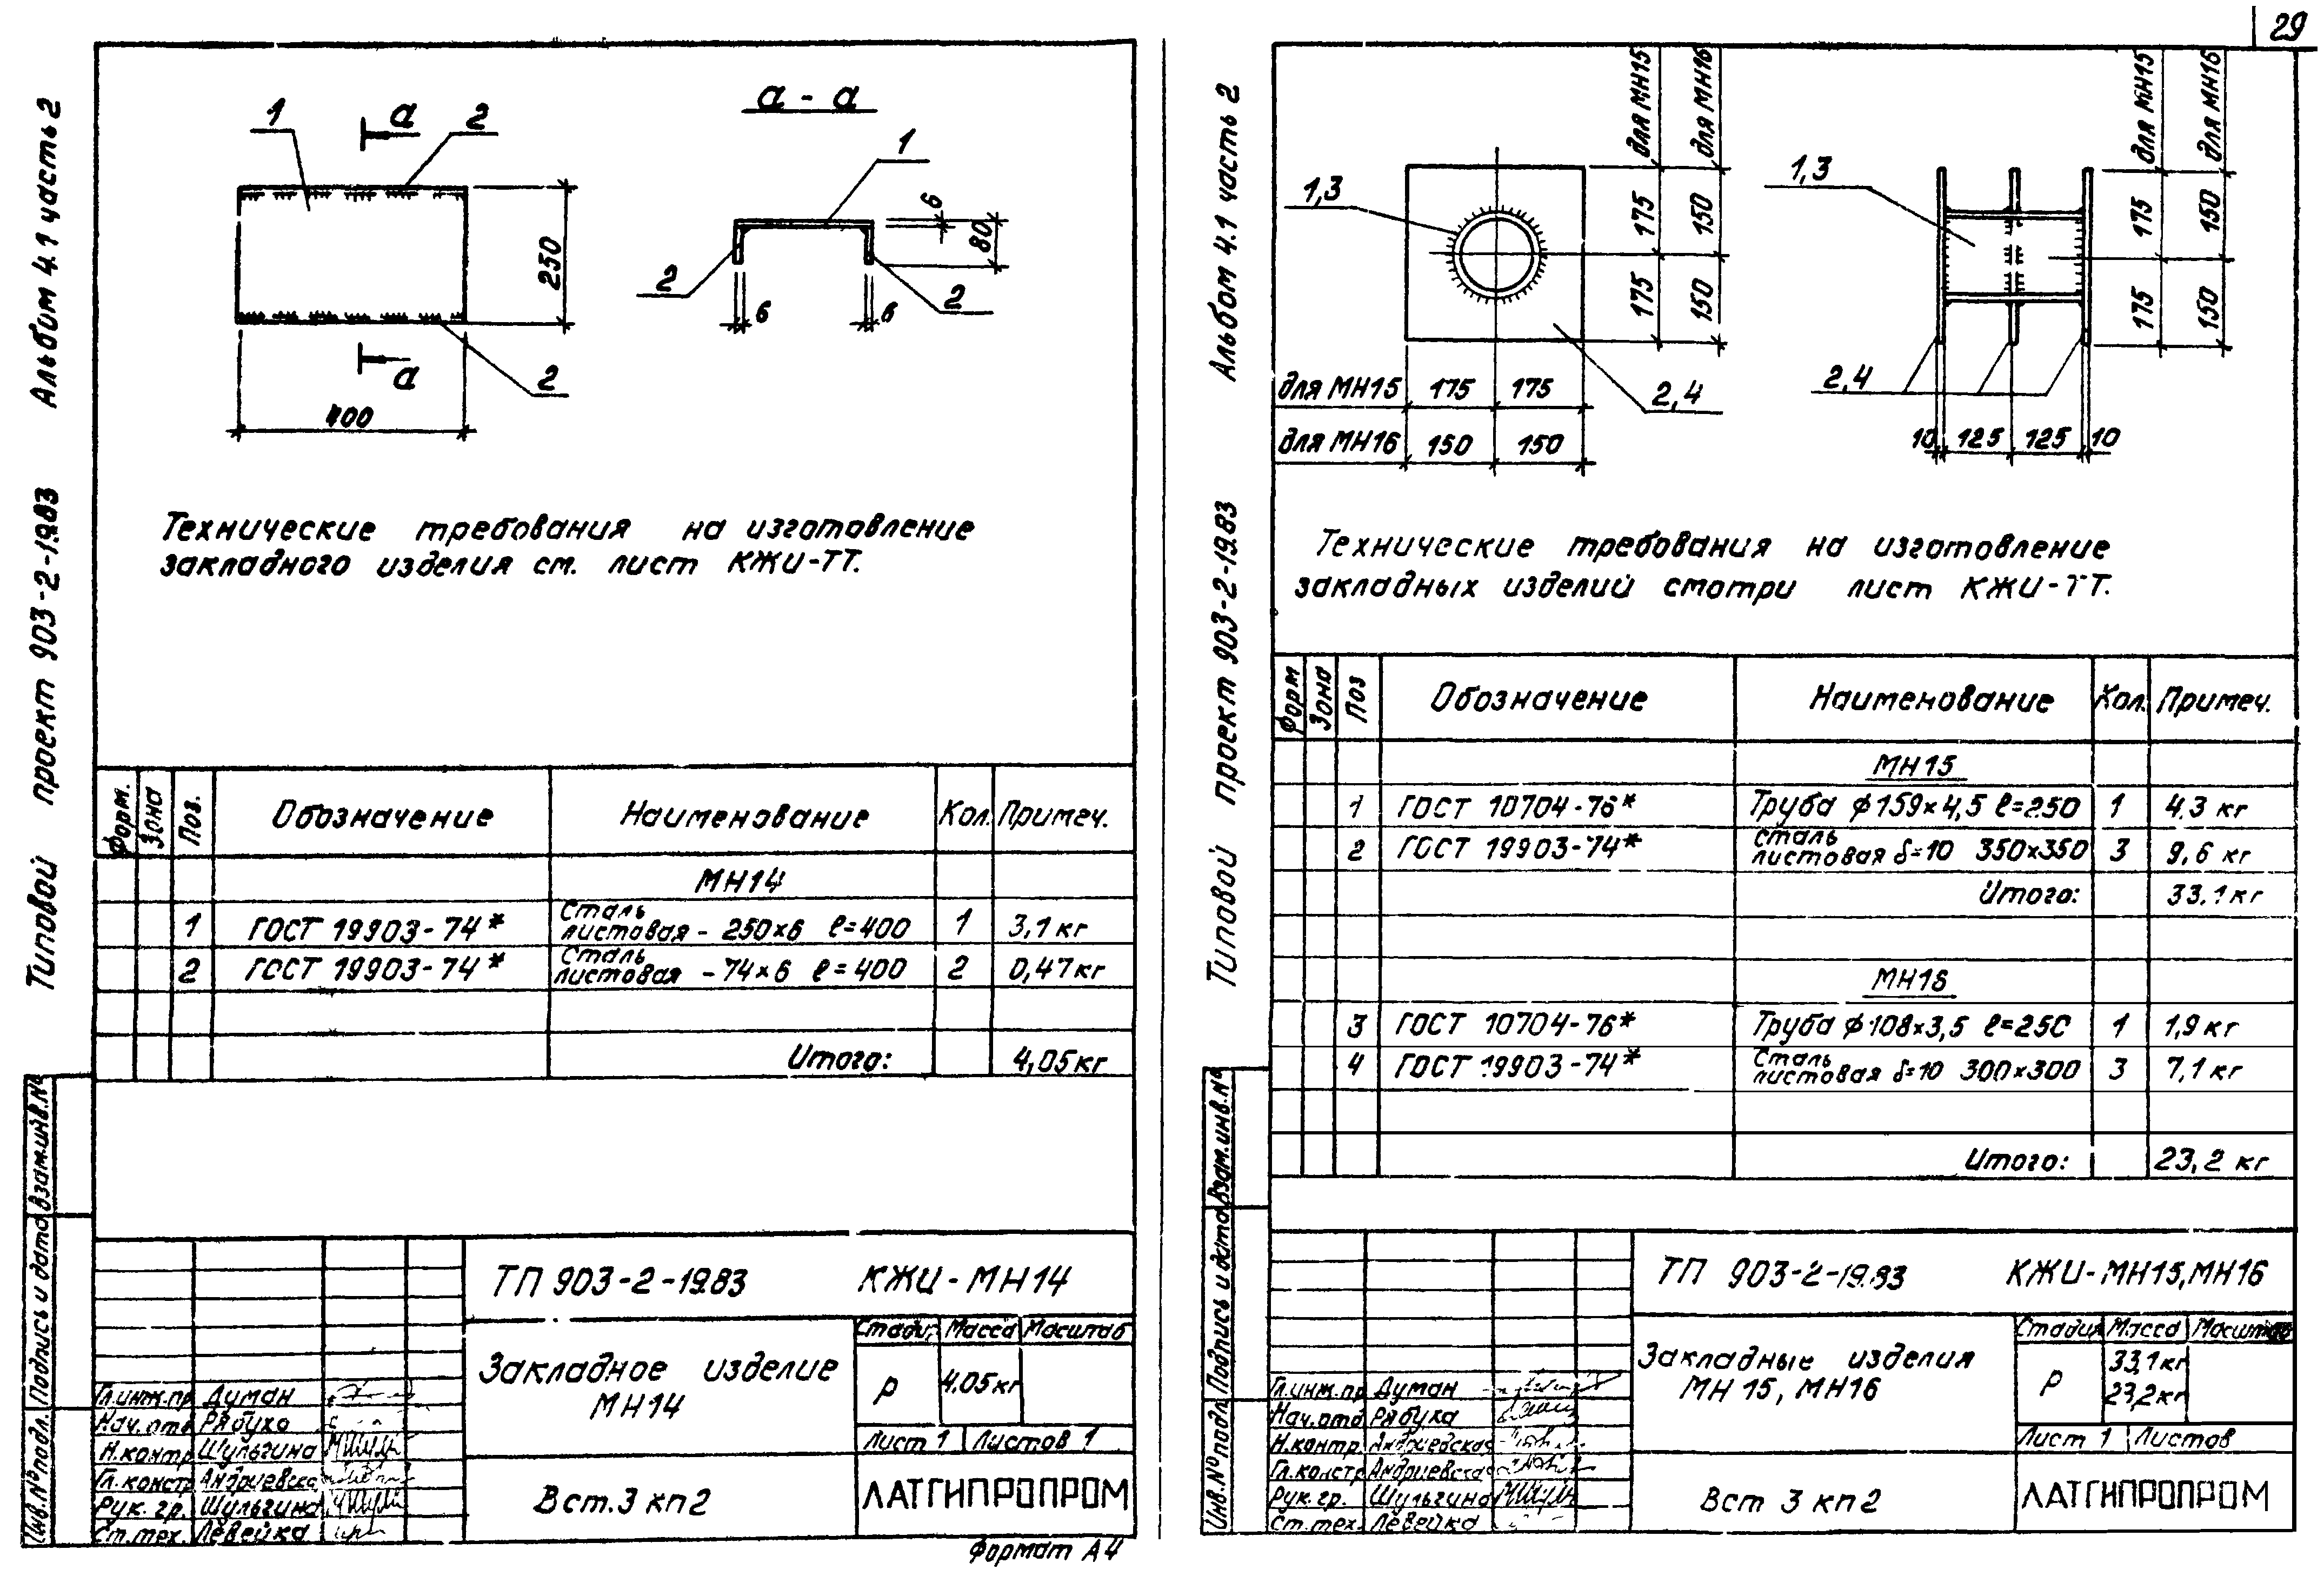 29
Альбом 4.1 часть 2
Типовой проект 903-2-19.83
1
а
2
а - а
1
250
2
2
6
80
6
6
а
2
400
Технические требования на изготовление
закладного изделия см. лист КЖИ-ТТ.
Форм. Зона Поз. Обозначение Наименование Кол. Примеч.
МН14
1 ГОСТ 19903-74* Сталь листовая - 250х6 ℓ=400 1 3,1 кг
2 ГОСТ 19903-74* Сталь листовая - 74х6 ℓ=400 2 0,47кг
Итого: 4,05кг
Взам.инв.№
Подпись и дата
Инв.№ подл.
ТП 903-2-19.83 КЖИ-МН14
Закладное изделие
МН14
Масса Масштаб
Р 4.05кг
Лист 1 Листов 1
Гл.инж.пр Думан
Нач.отд Рябуха
Н.контр Шульгина
Гл.констр Андриевска
Рук. гр. Шульгина
Ст.тех. Левейка
Вст.3 кп2
ЛАТГИПРОПРОМ
Формат А4
Альбом 4.1 часть 2
Типовой проект 903-2-19.83
для МН15
для МН16
1,3
175
150
175
150
2,4
для МН15 175 175
для МН16 150 150
для МН15
для МН16
1,3
175
150
175
150
2,4
10 125 125 10
Технические требования на изготовление
закладных изделий смотри лист КЖИ-ТТ.
Форм Зона Поз Обозначение Наименование Кол. Примеч.
МН15
1 ГОСТ 10704-76* Труба ф159х4,5 ℓ=250 1 4.3 кг
2 ГОСТ 19903-74* Сталь листовая δ=10 350х350 3 9,6 кг
Итого: 33.1кг
МН16
3 ГОСТ 10704-76* Труба ф108х3,5 ℓ=250 1 1,9 кг
4 ГОСТ 19903-74* Сталь листовая δ=10 300х300 3 7,1 кг
Итого: 23,2 кг
Взам.инв.№
Подпись и дата
Инв.№ подл
ТП 903-2-19.83 КЖИ-МН15,МН16
Закладные изделия
МН15, МН16
Стадия Масса Масштаб
Р
33,1кг
23,2кг
Лист 1 Листов
Гл.инж.пр Думан
Нач.отд Рябука
Н.контр. Андриевская
Гл.констр Андриевская
Рук.гр. Шульгина
Ст.тех. Левейка
Вст 3 кп2
ЛАТГИПРОПРОМ